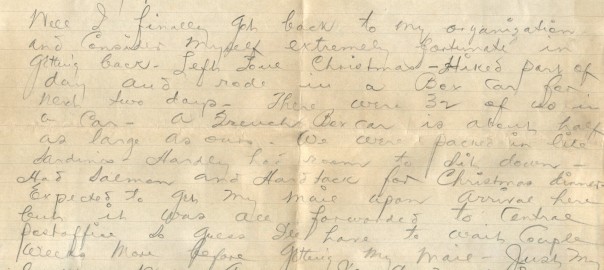 Well I finally got back to my organization
and consider myself extremely fortunate in
getting back - Left Toul Christmas - Hiked part of
day and rode in a Box Car for
next two days - There were 32 of us in
a Car - a French Box car is about half
as large as ours. We were packed in like
Sardines - Hardly had room to sit down -
Had Salmon and Hard tack for Christmas dinner
Expected to get my mail upon arrival here
but it was all forwarded to Central
postoffice So guess I'll have to wait couple
weeks more before getting my mail - Just my